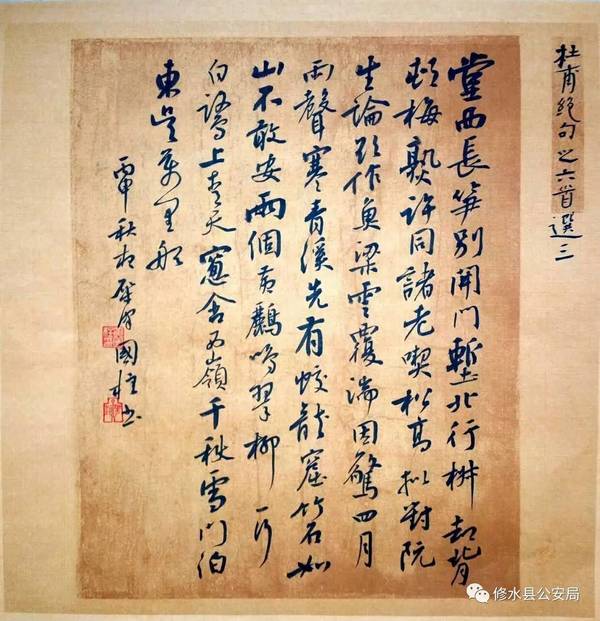 杜甫絕句之六首選三
堂西長筍別開門塹北行椒却背
村梅熟許同諸老喫松高擬對阮
生論欲作魚梁雲覆湍因驚四月
雨聲寒青溪先有蛟龍窟竹石如
山不敢安兩個黃鸝鳴翠柳一行
白鷺上青天窗含西嶺千秋雪門泊
東吳萬里船
丙申秋國柱书
修水县公安局